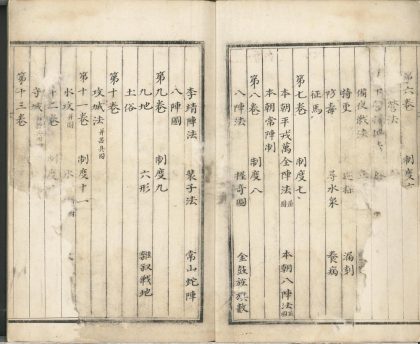 第六卷 制度六
營法
備夜戰法
持更 漏刻
防毒 尋水泉 養病
征馬
第七卷 制度七
本朝平戎萬全陣法 本朝八陣法
本朝常陣制
第八卷 制度八
八陣法 握奇圖 金鼓旗數
李靖陣法 裴子法 常山蛇陣
八陣圖
第九卷 制度九
九地 六形 雜叙戰地
土俗
第十卷 制度十
攻城法 并器具圖
第十一卷 制度十一
水攻 并圖
第十二卷
守城
第十三卷